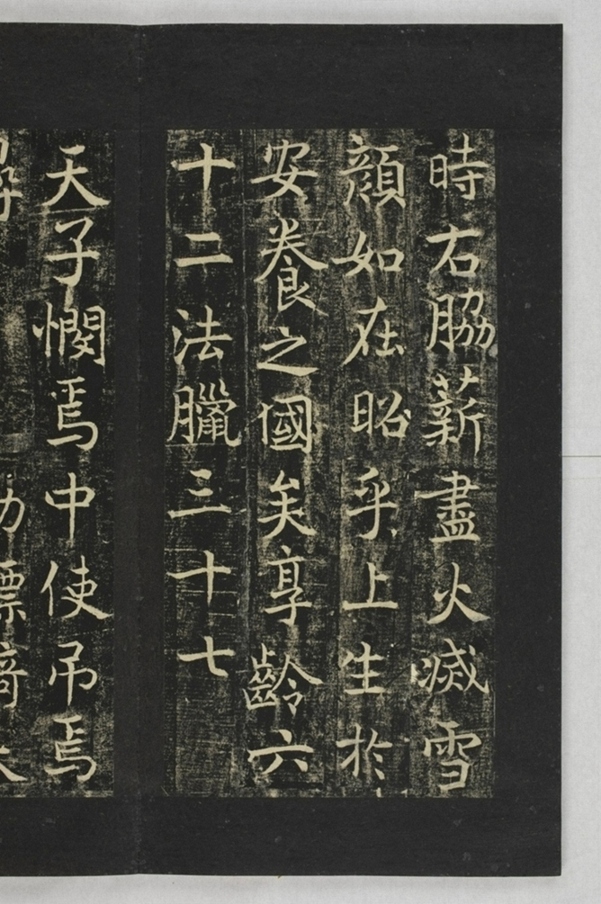 時右脇薪盡火滅雪
顔如在昭乎上生於
安養之國矣享齡六
十二法臘三十七
天子憫焉中使吊焉